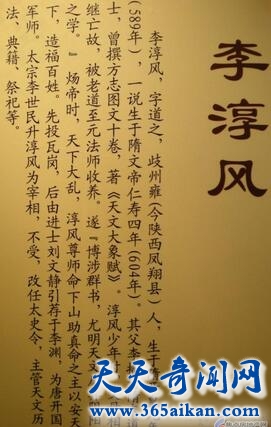 李淳风
李淳风，字道之，歧州雍（今陕西凤翔县）人，生于隋
（589年），一说生于隋文帝仁寿四年（604年）。其父李播 道
士，曾撰方志图文十卷，著《天文大象赋》。淳风少年时 相
继亡故，被老道至元法师收养。遂『博涉群书，尤明天文 阴阳
之学。』炀帝时，天下大乱，淳风尊师命下山助真命之主以安天
下，造福百姓。先投瓦岗，后由进士刘文静引荐于李渊，为唐开国
军师。太宗李世民升淳风为宰相，不受，改任太史令，主管天文历
法、典籍、祭祀等。
天天奇闻网
www.365aikan.com